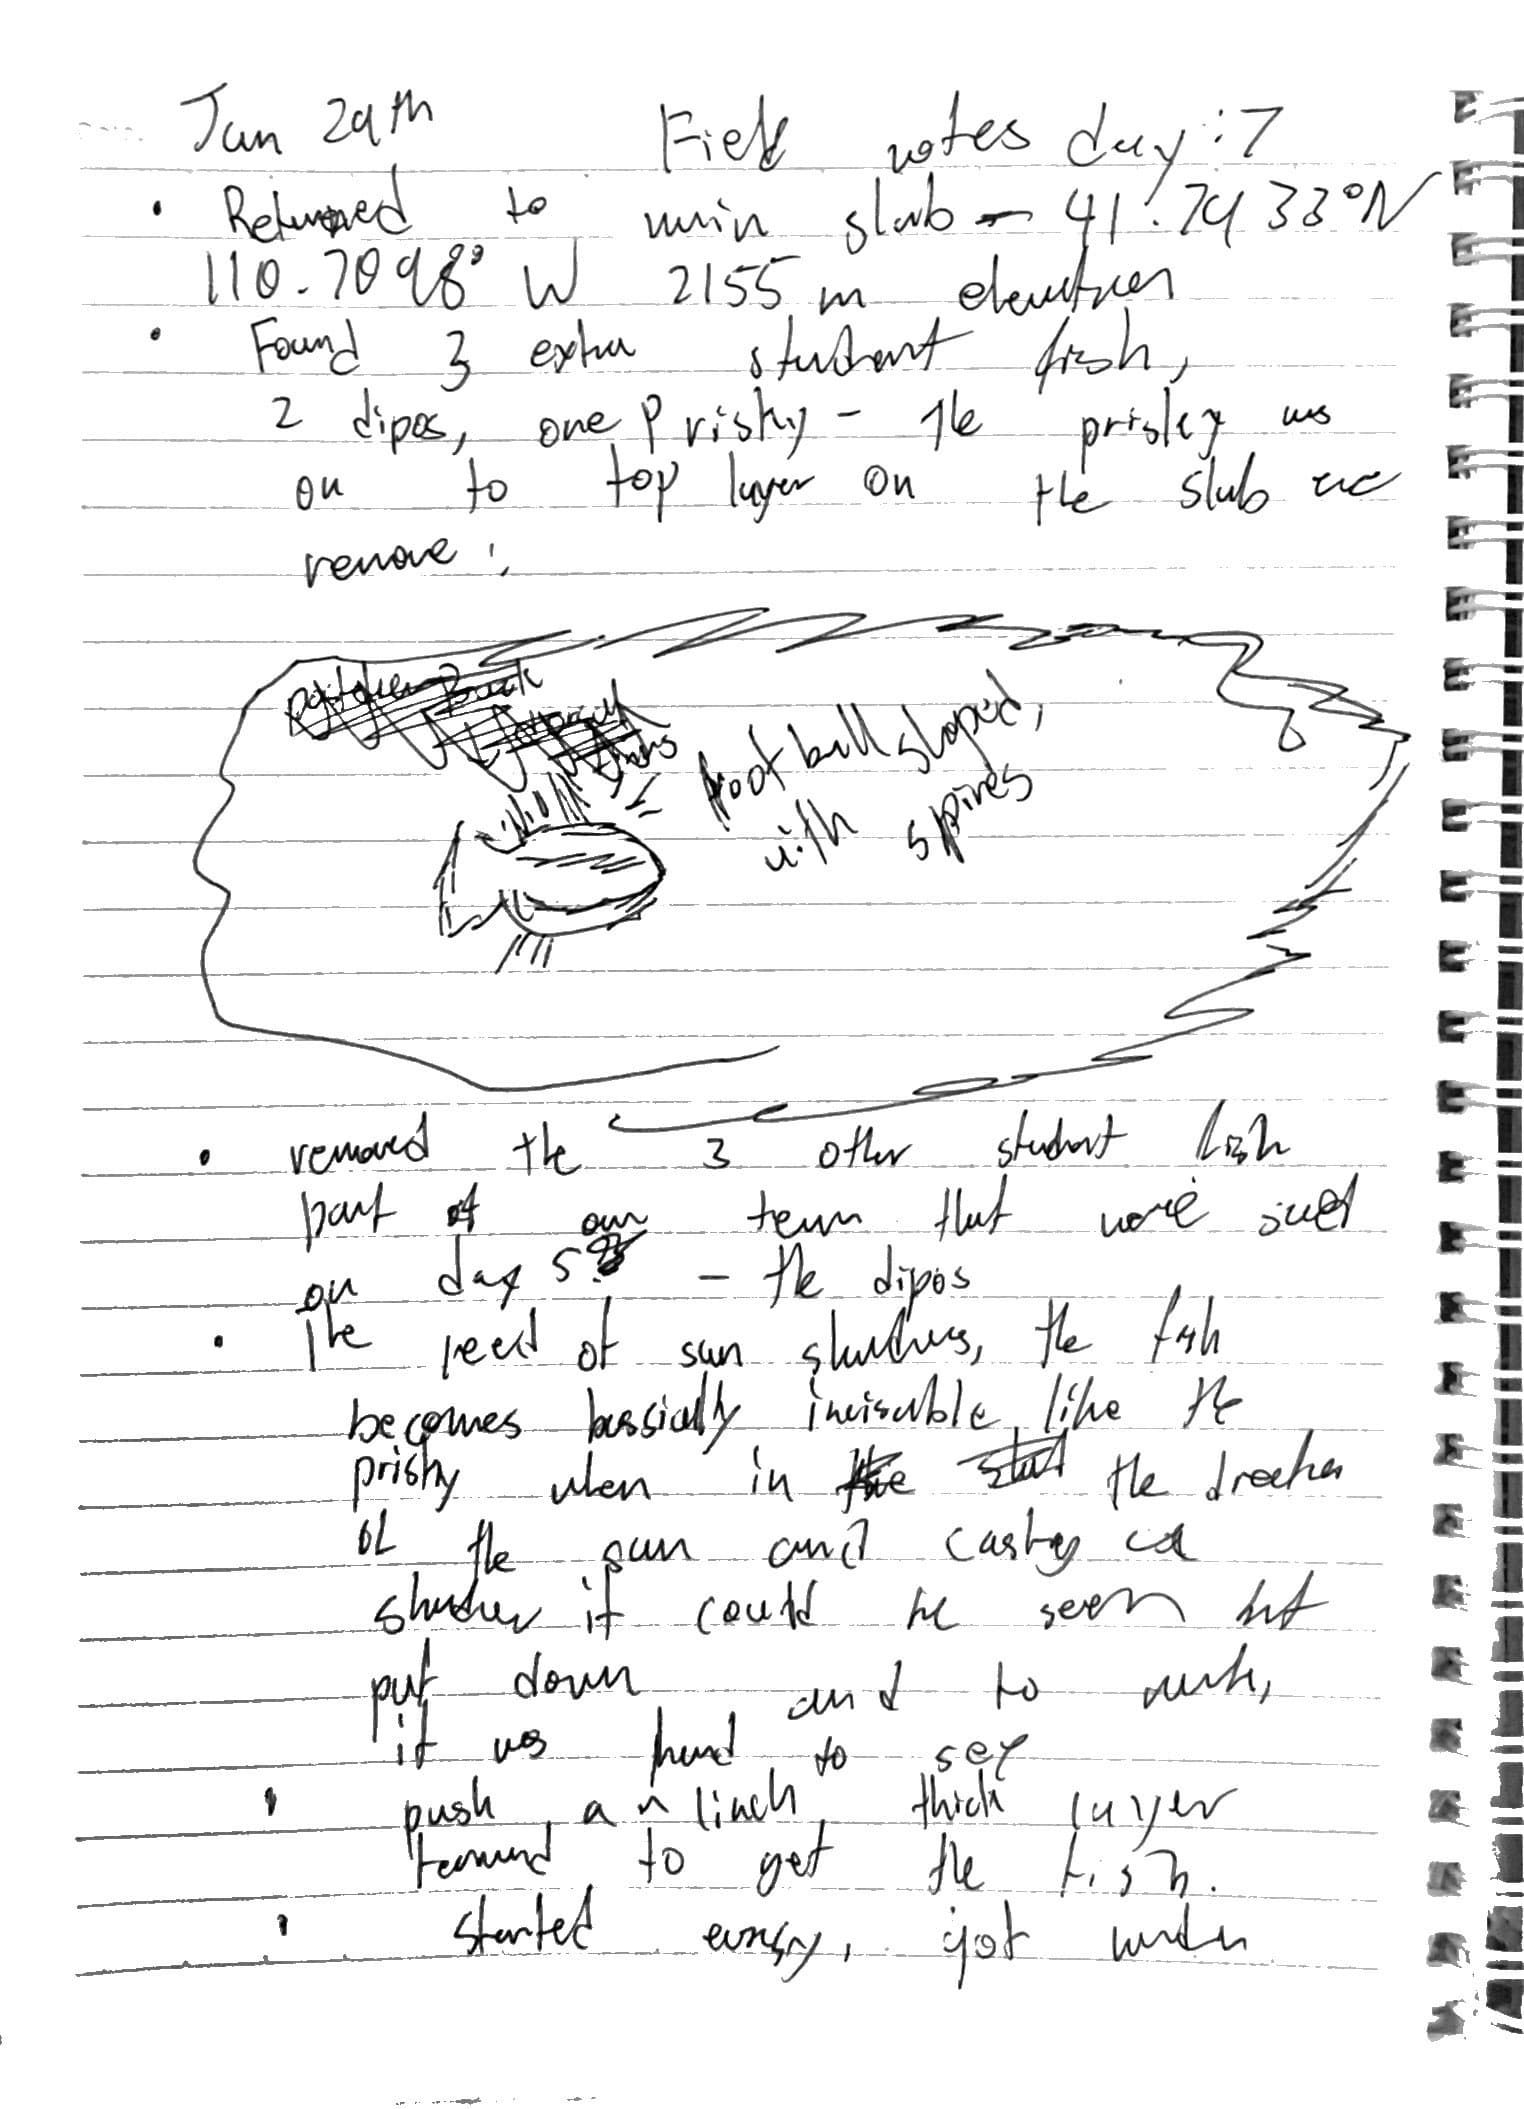 Jun 29th Field notes day: 7
• Returned to main slab - 41.7433°N
110.7098° W 2155 m elevation
• Found 3 extra student fish,
2 dipos, one Prisky - the prisky was
on to top layer on the slab we
remove:
football shaped,
with spires
• removed the 3 other student fish
part of our team that were
on day 5 - the dipos
• The of sun shadows, the fish
becomes bassically invisable like the
prisky when in the
of the sun and casting a
shadow it could be seen but
put down and to
it was hard to see
• push an 1 inch thick layer
to get the fish.
• started, got